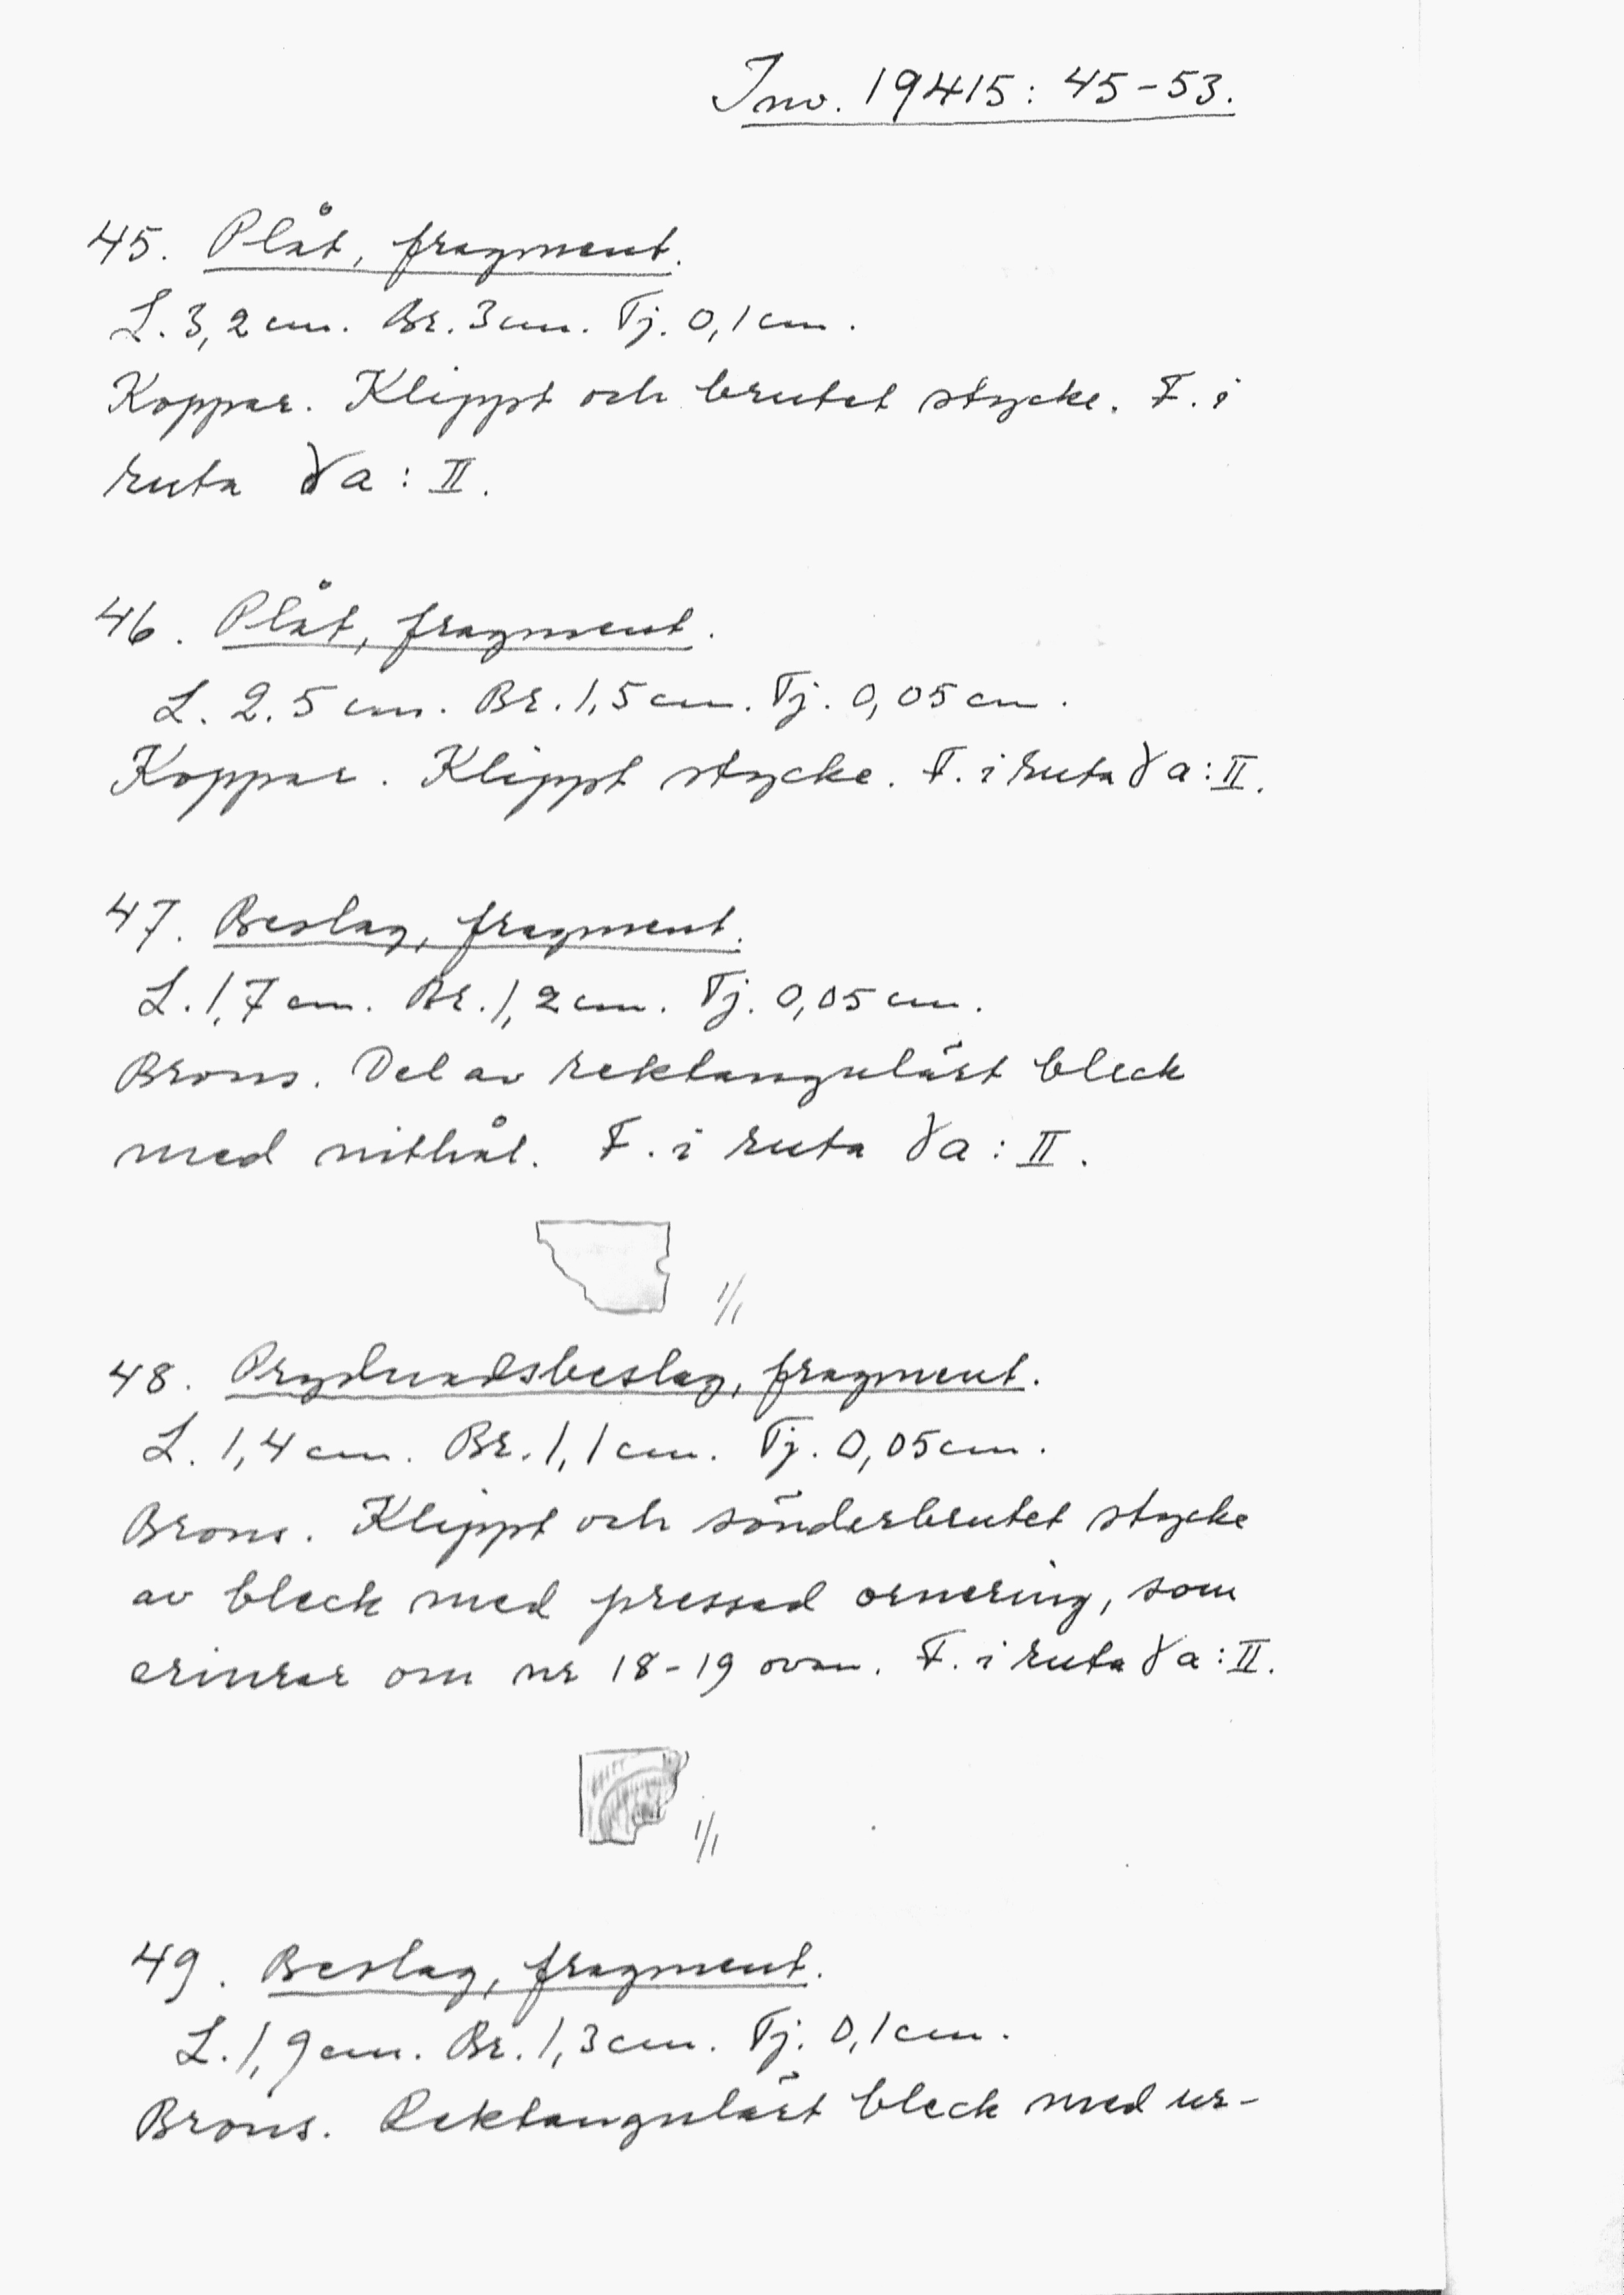 Inv. 19415: 45-53.
45. Plåt, fragment.
L. 3,2 cm. Br. 3 cm. Tj. 0,1 cm.
Koppar. Klippt och brutet stycke. F. i
ruta γa: II.
46. Plåt, fragment.
L. 2.5 cm. Br. 1,5 cm. Tj. 0,05 cm.
Koppar. Klippt stycke. F. i ruta γa: II.
47. Beslag, fragment.
L. 1,7 cm. Br. 1,2 cm. Tj. 0,05 cm.
Brons. Del av rektangulärt bleck
med nithål. F. i ruta γa: II.
1/1
48. Prydnadsbeslag, fragment.
L. 1,4 cm. Br. 1,1 cm. Tj. 0,05 cm.
Brons. Klippt och sönderbrutet stycke
av bleck med pressad ornering, som
erinrar om nr 18-19 ovan. F. i ruta γa: II.
1/1
49. Beslag, fragment.
L. 1,9 cm. Br. 1,3 cm. Tj. 0,1 cm.
Brons. Rektangulärt bleck med ur-